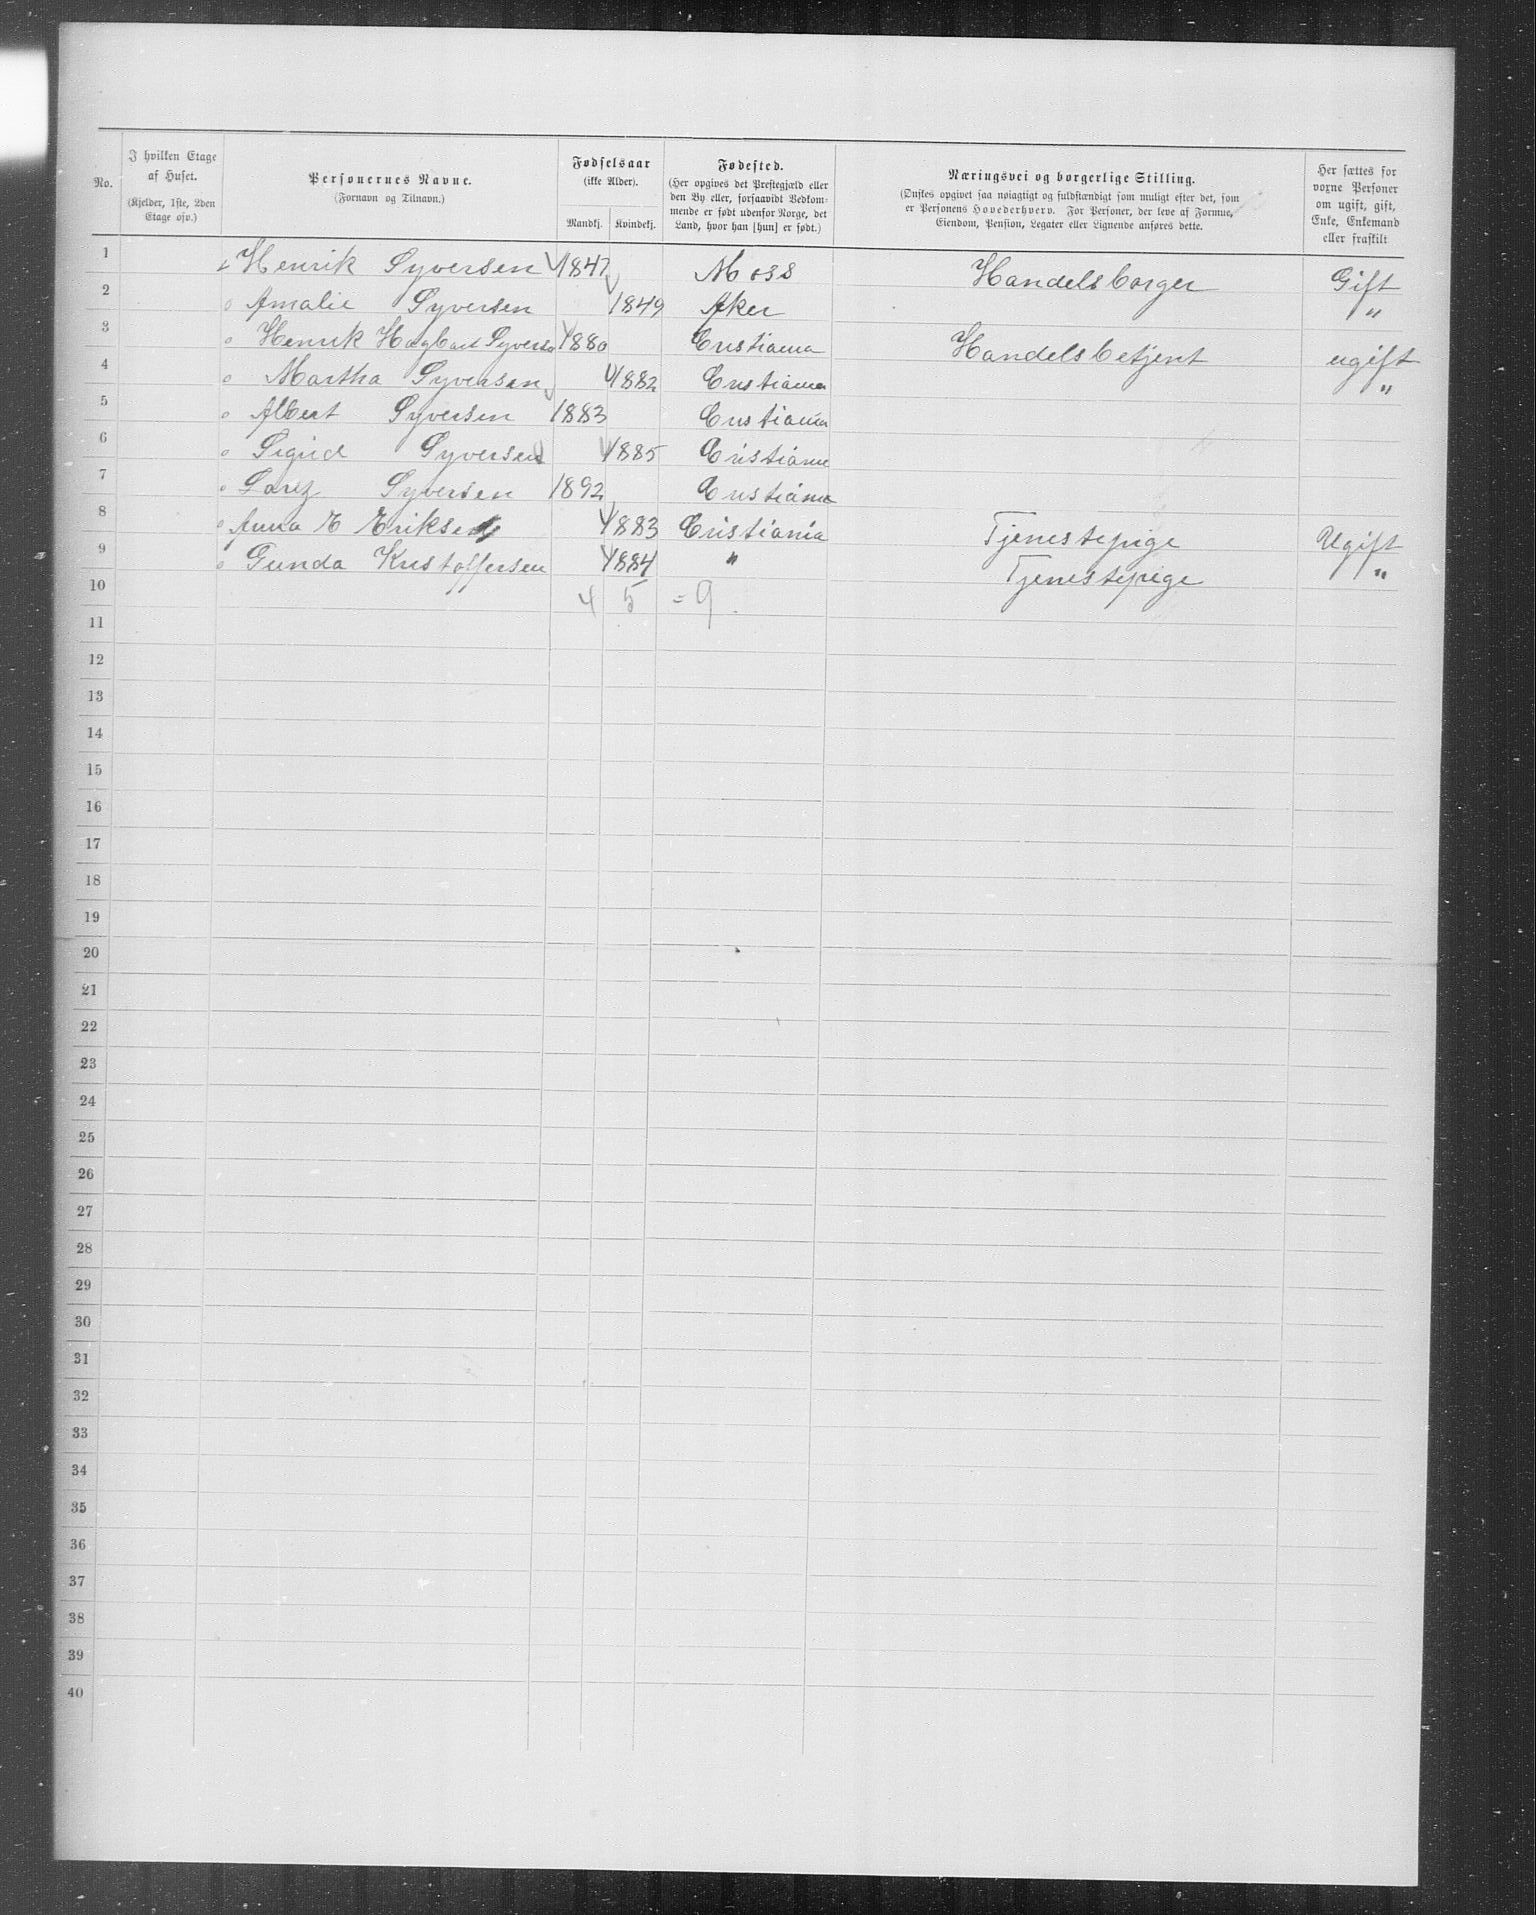 No. | I hvilken Etage af Huset. (Kjelder, 1ste, 2den Etage osv.) | Personernes Navne. (Fornavn og Tilnavn.) | Fødselsaar (ikke Alder). Mandkj. | Kvindekj. | Fødested. (Her opgives det Prestegjæld eller den By eller, forsaavidt Vedkommende er født udenfor Norge, det Land, hvor han [hun] er født.) | Næringsvei og borgerlige Stilling. (Ønskes opgivet saa nøiagtigt og fuldstændigt som muligt efter det, som er Personens Hovederhverv. For Personer, der leve af Formue, Eiendom, Pension, Legater eller Lignende anføres dette.) | Her sættes for voxne Personer om ugift, gift, Enke, Enkemand eller fraskilt
1 Henrik Syversen 1847 Moss Handelsborger Gift
2 Amalie Syversen 1849 Aker "
3 Henrik Hagbart Syversen 1880 Cristiania Handelsbetjent ugift
4 Martha Syversen 1882 Cristiania "
5 Albert Syversen 1883 Cristiania
6 Sigrid Syversen 1885 Cristiania
7 Syversen 1892 Cristiania
8 Anna E Eriksen 1883 Cristiania Tjenestepige Ugift
9 Gunda Kristoffersen 1884 " Tjenestepige "
10 4 5 = 9.
11
12
13
14
15
16
17
18
19
20
21
22
23
24
25
26
27
28
29
30
31
32
33
34
35
36
37
38
39
40